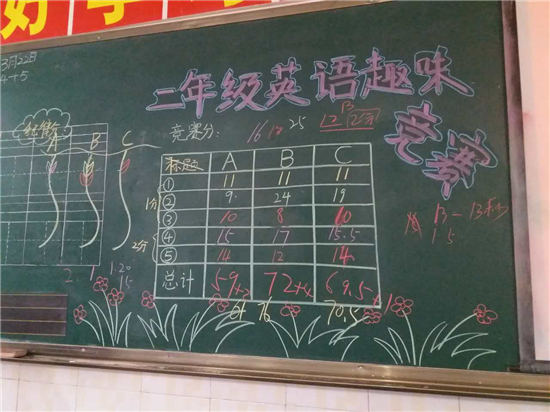 好学
3月22日
4+5
二年级英语趣味
竞赛
竞赛分: 16 12 25
A B C
标题 A B C
① 11 11 11
1分 ② 9 24 19
③ 10 8 10
2分 ④ 15 17 15.5
⑤ 14 12 14
总计 59+2 72+4 69.5+1
61 76 70.5
B-13
15
2 1 1.20
15